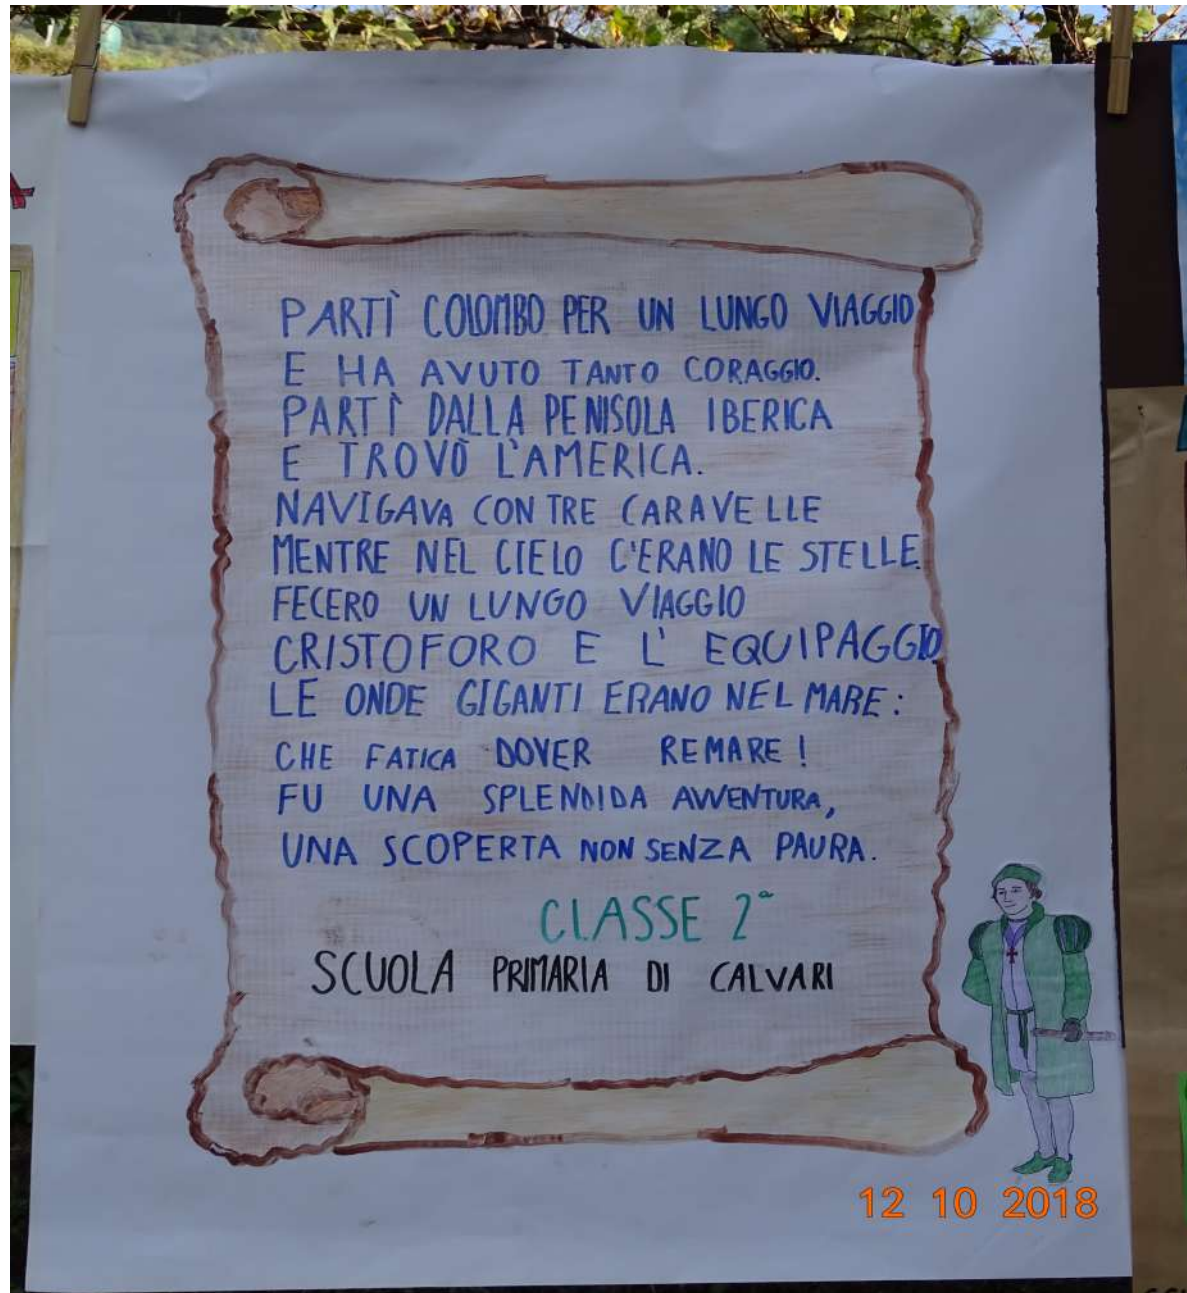 PARTÌ COLOMBO PER UN LUNGO VIAGGIO
E HA AVUTO TANTO CORAGGIO.
PARTÌ DALLA PENISOLA IBERICA
E TROVÒ L'AMERICA.
NAVIGAVA CON TRE CARAVELLE
MENTRE NEL CIELO C'ERANO LE STELLE.
FECERO UN LUNGO VIAGGIO
CRISTOFORO E L' EQUIPAGGIO
LE ONDE GIGANTI ERANO NEL MARE:
CHE FATICA DOVER REMARE!
FU UNA SPLENDIDA AVVENTURA,
UNA SCOPERTA NON SENZA PAURA.
CLASSE 2ª
SCUOLA PRIMARIA DI CALVARI
12 10 2018